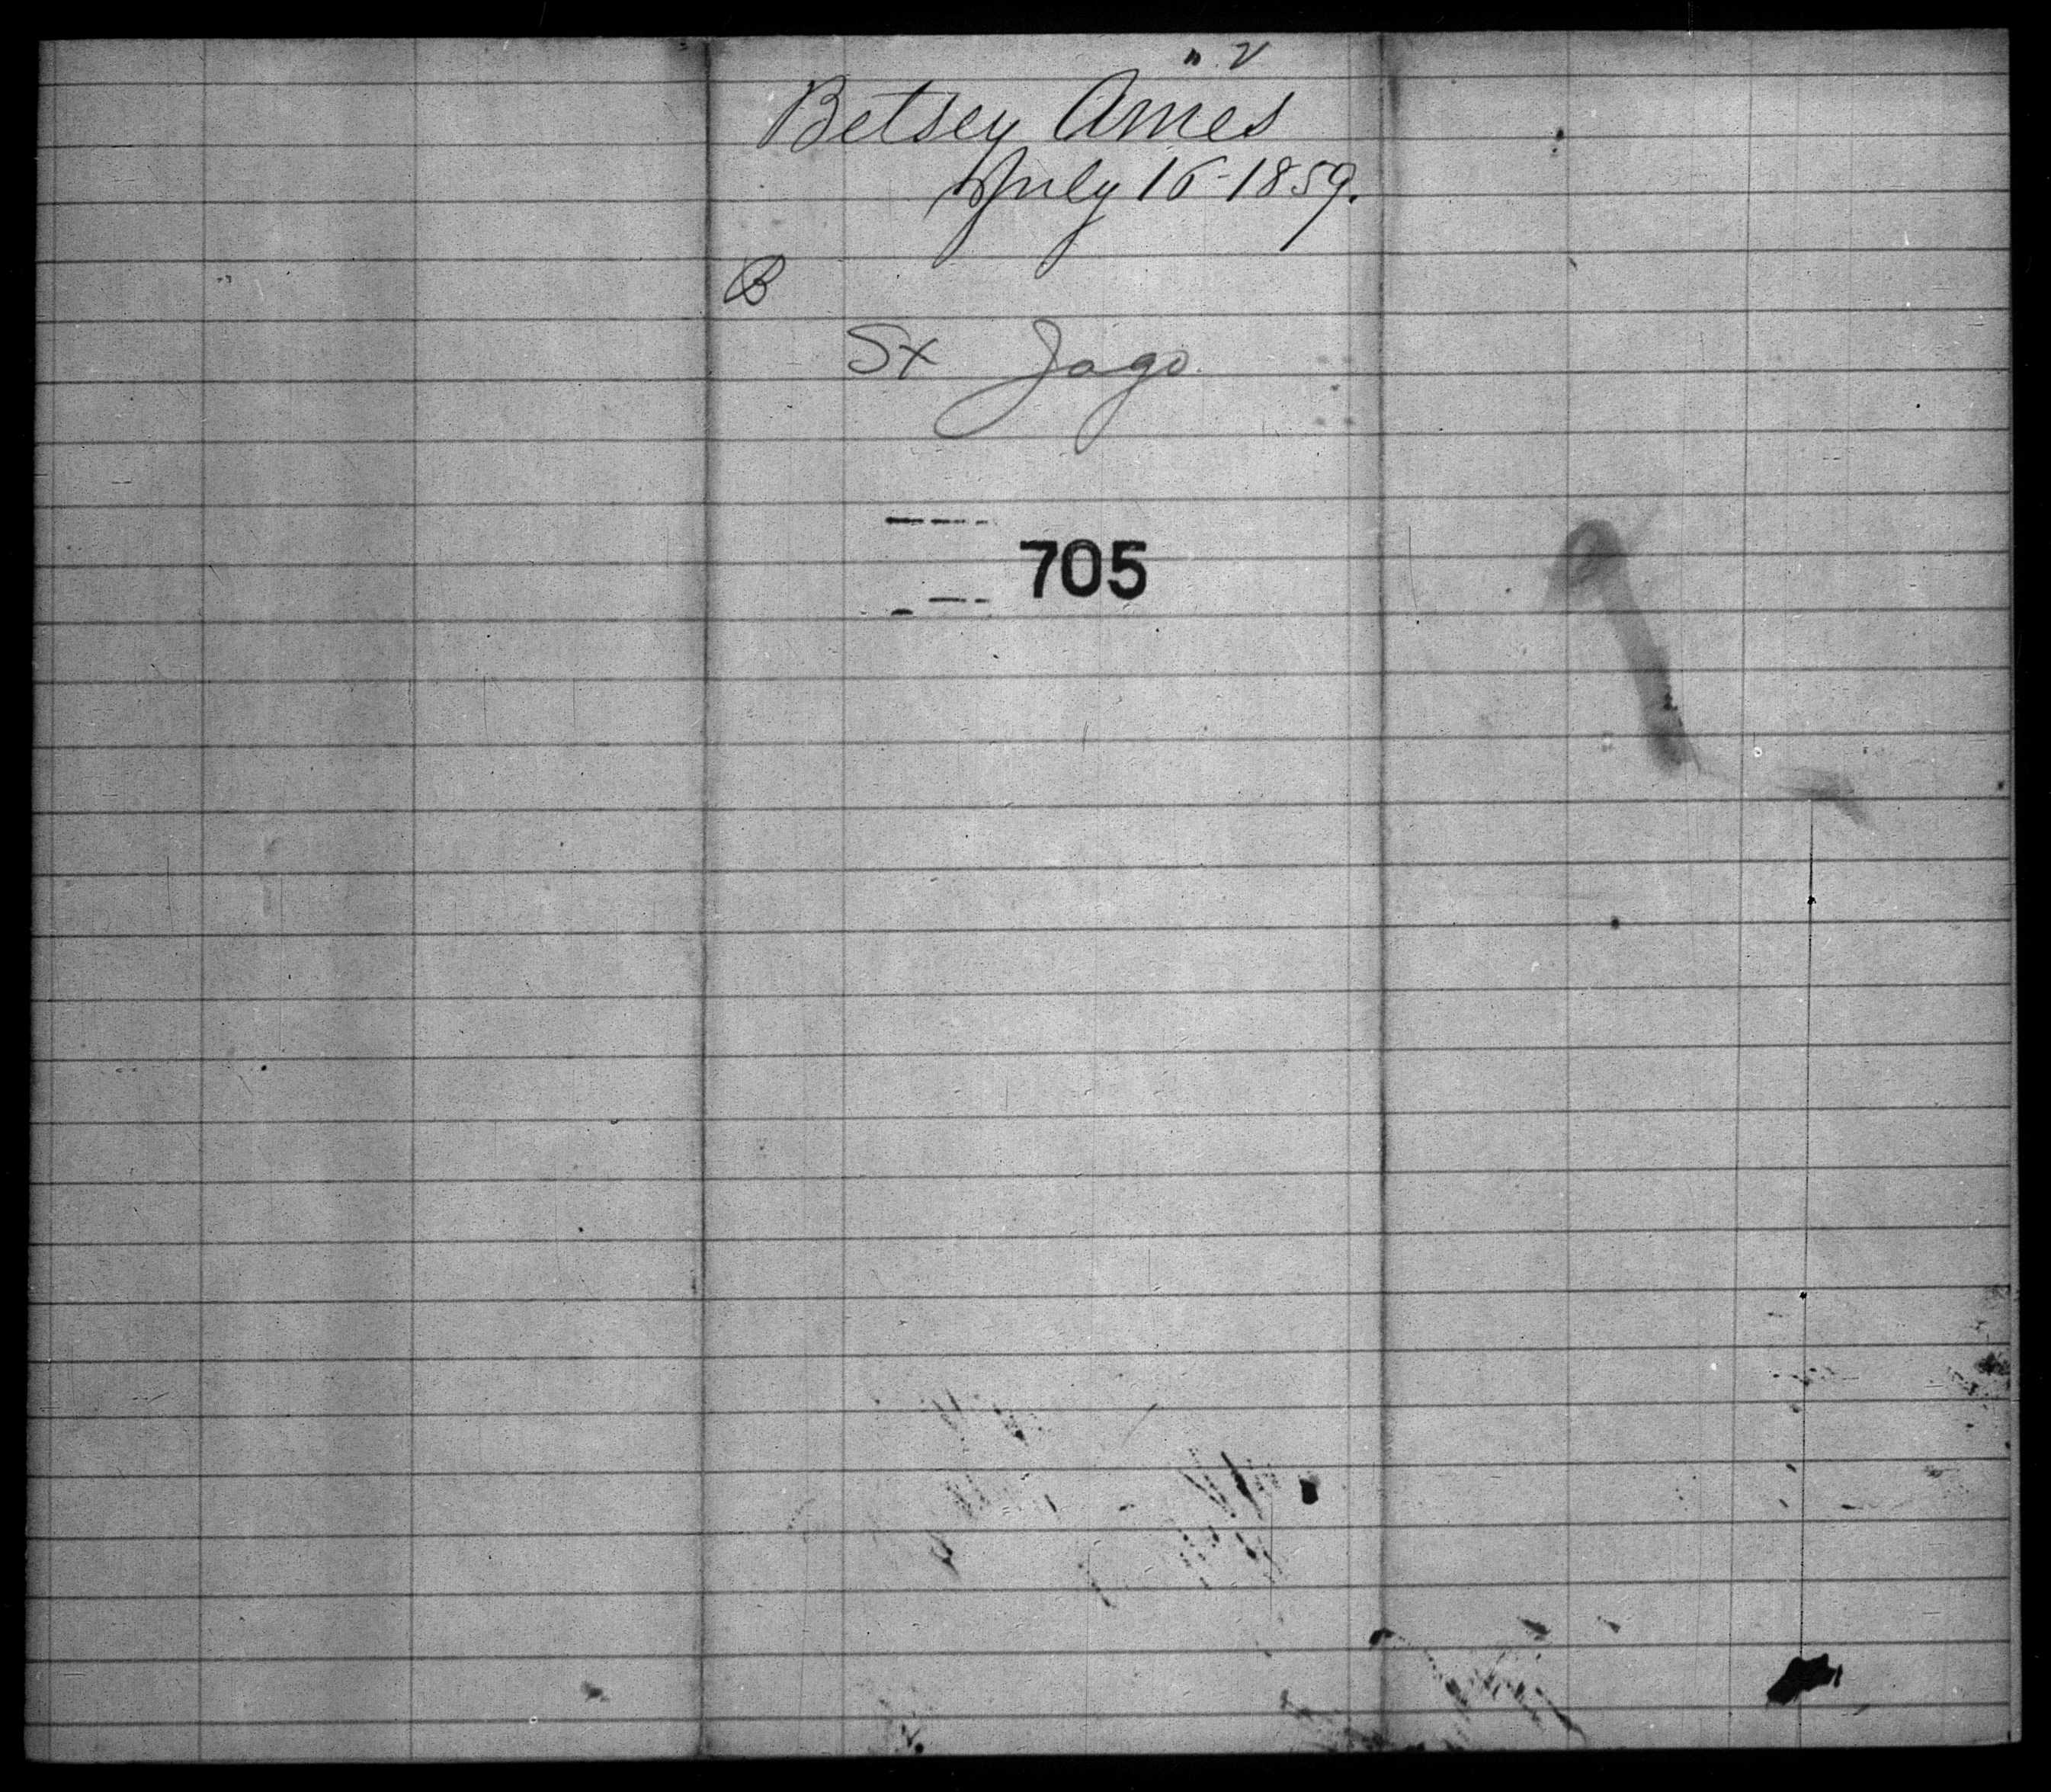 Betsey Ames
July 16-1859.
B
St Jago.
705